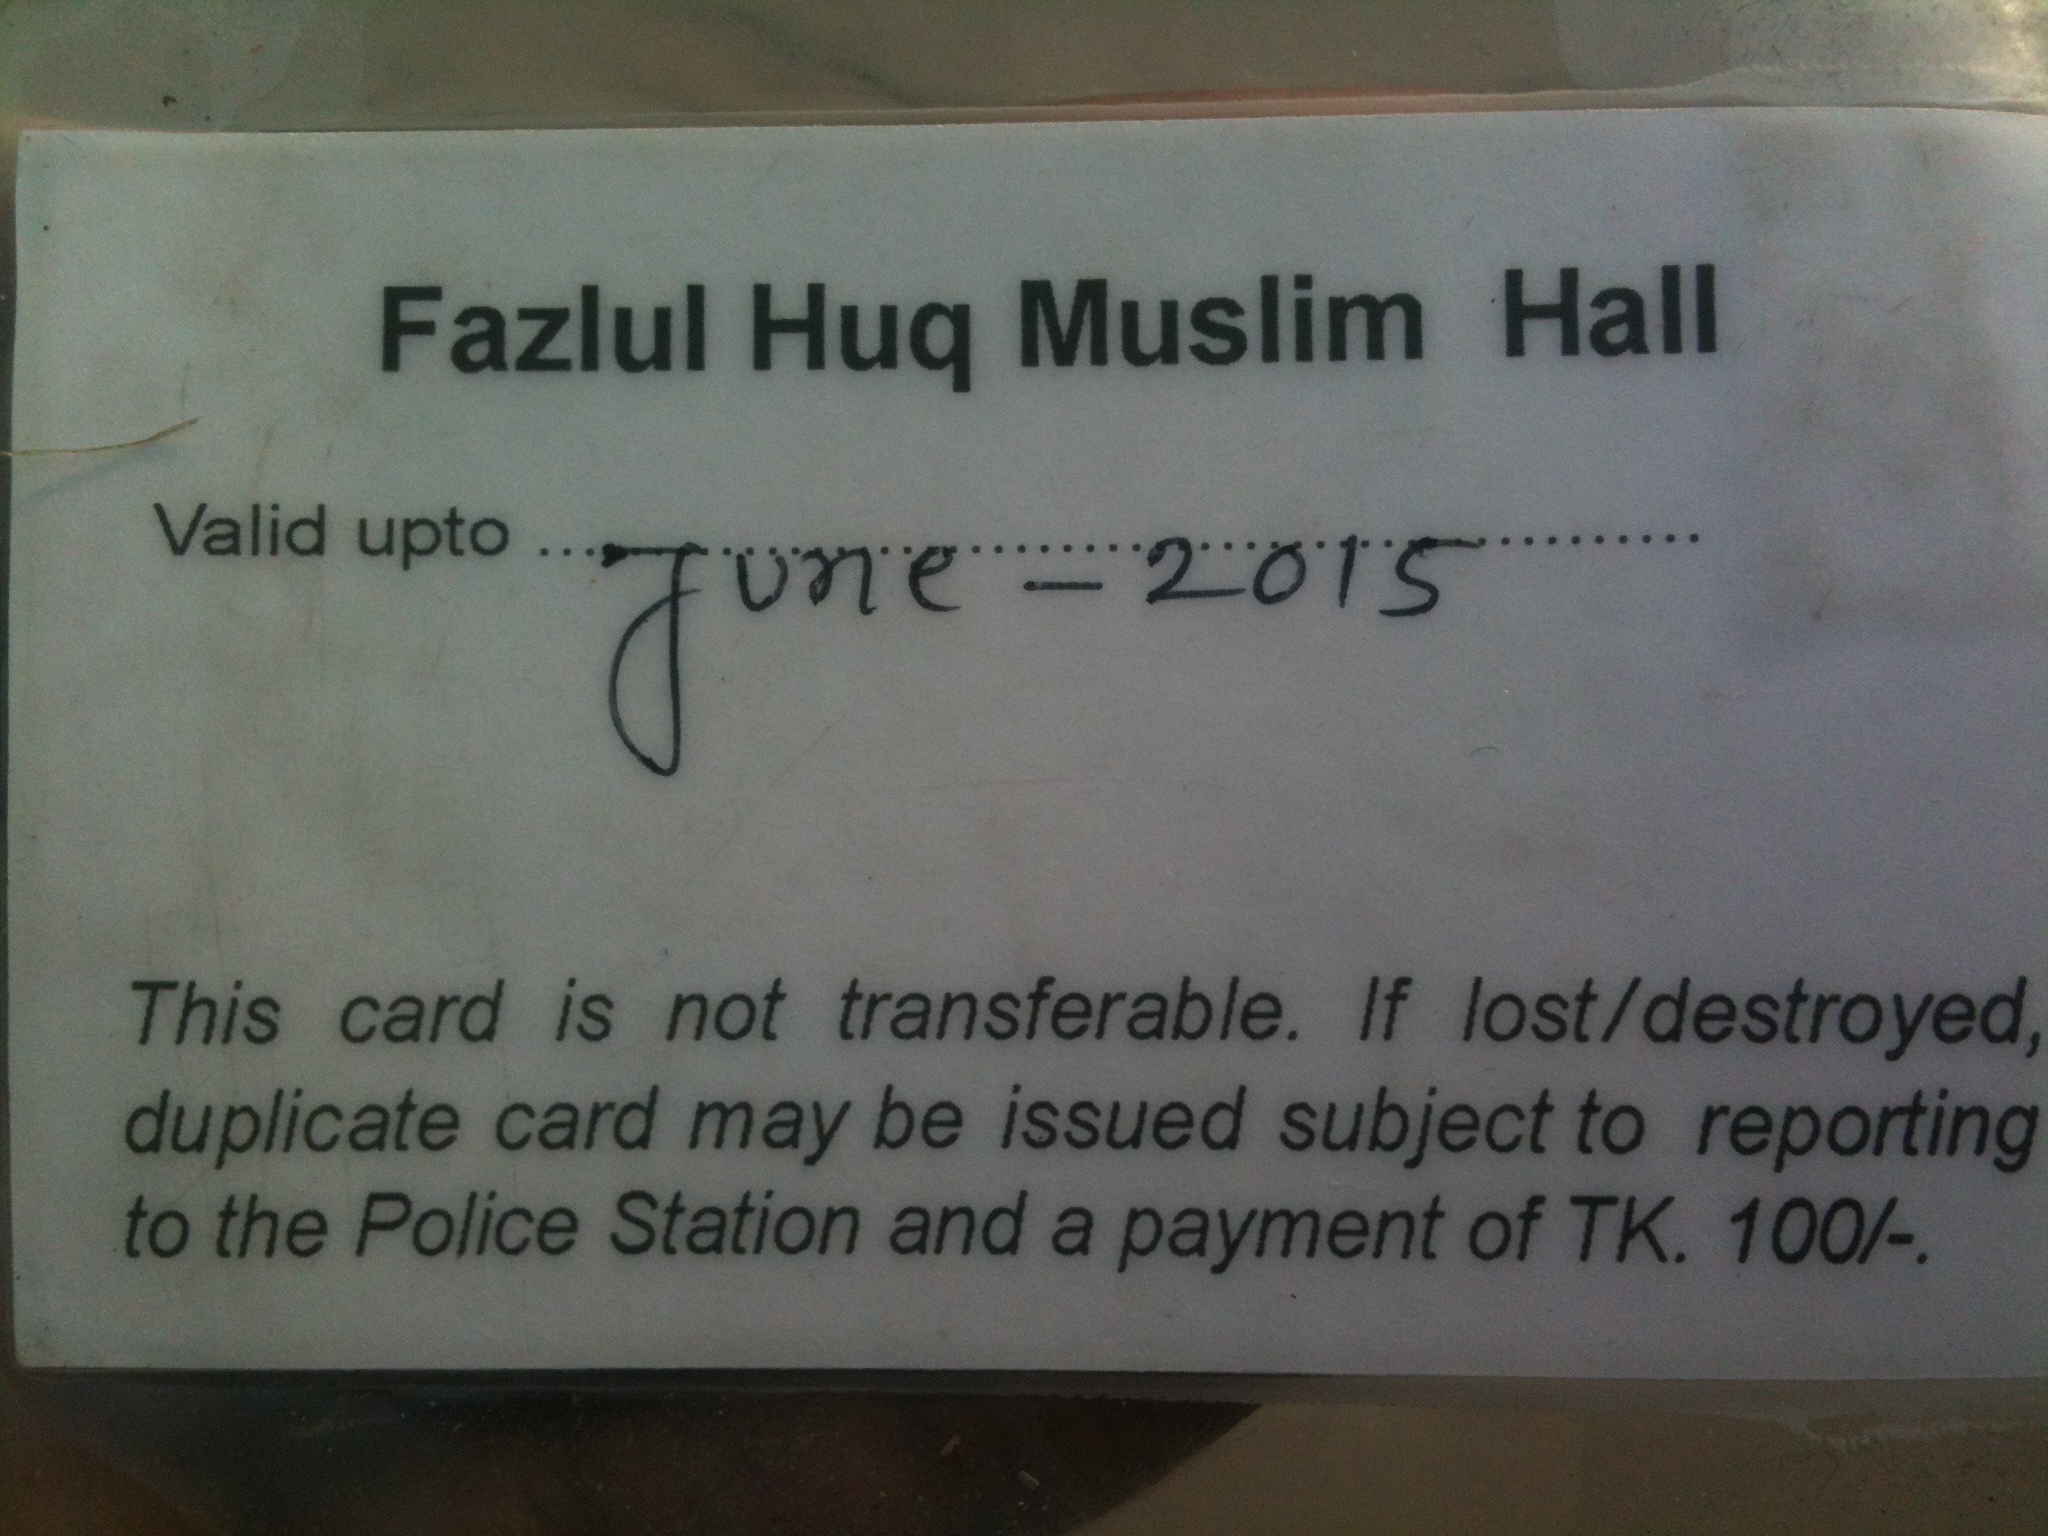 Fazlul Huq Muslim Hall
Valid upto ........June - 2015........
This card is not transferable. If lost/destroyed,
duplicate card may be issued subject to reporting
to the Police Station and a payment of TK. 100/-.